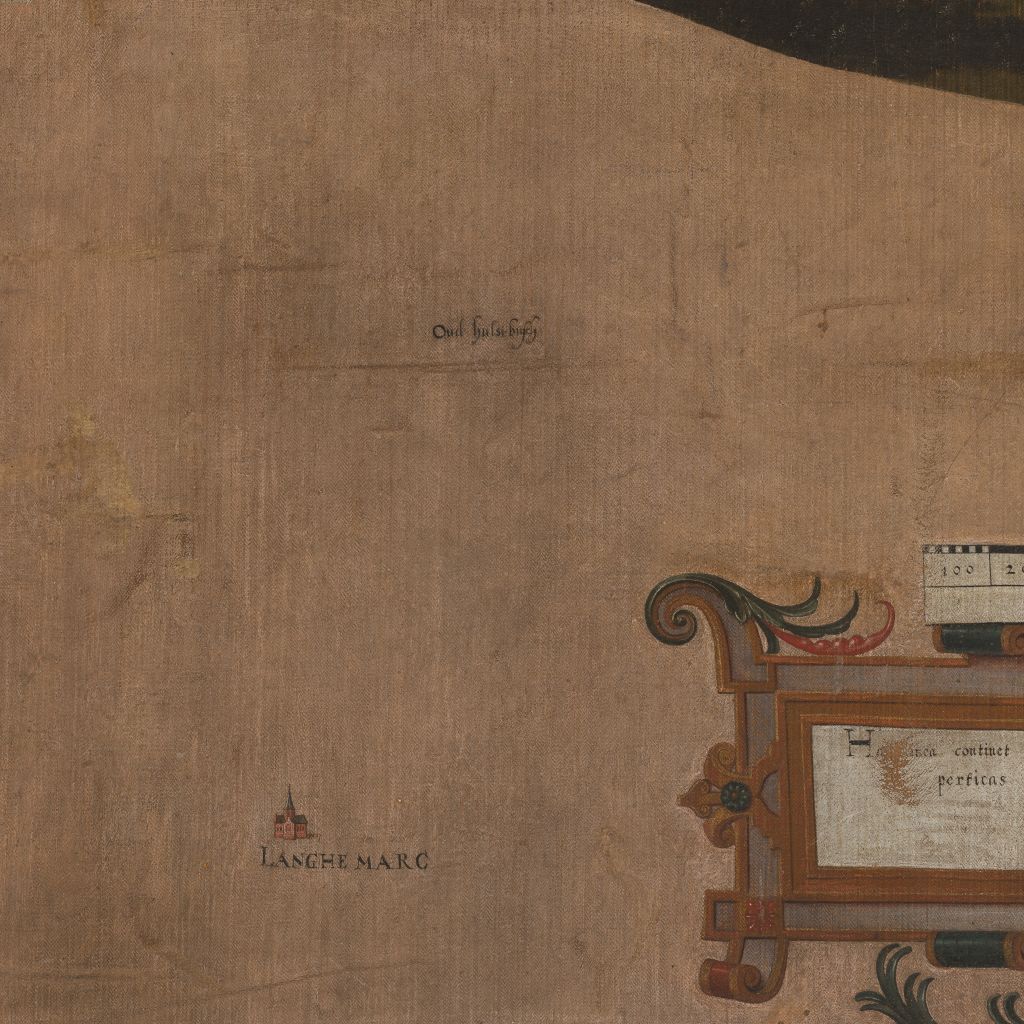 Oud hulsebusch
100 20
continet
perticas
LANGHEMARC